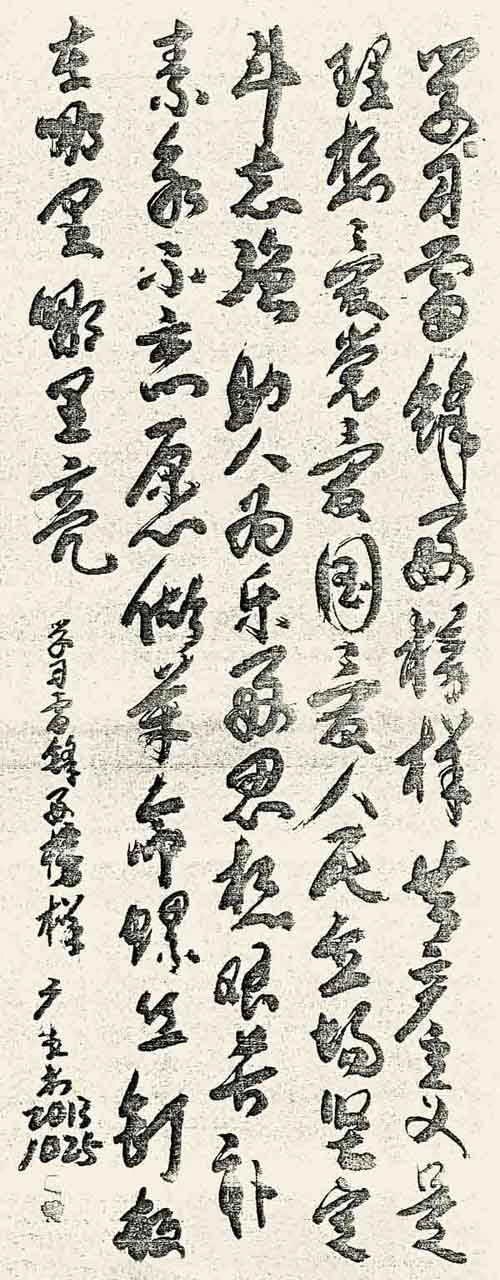 学习雷锋好榜样共产主义是
理想爱党爱国爱人民立场坚定
斗志强助人为乐好思想艰苦朴
素永不忘愿做革命螺丝钉
在哪里哪里亮
学习雷锋好榜样
2013
1025